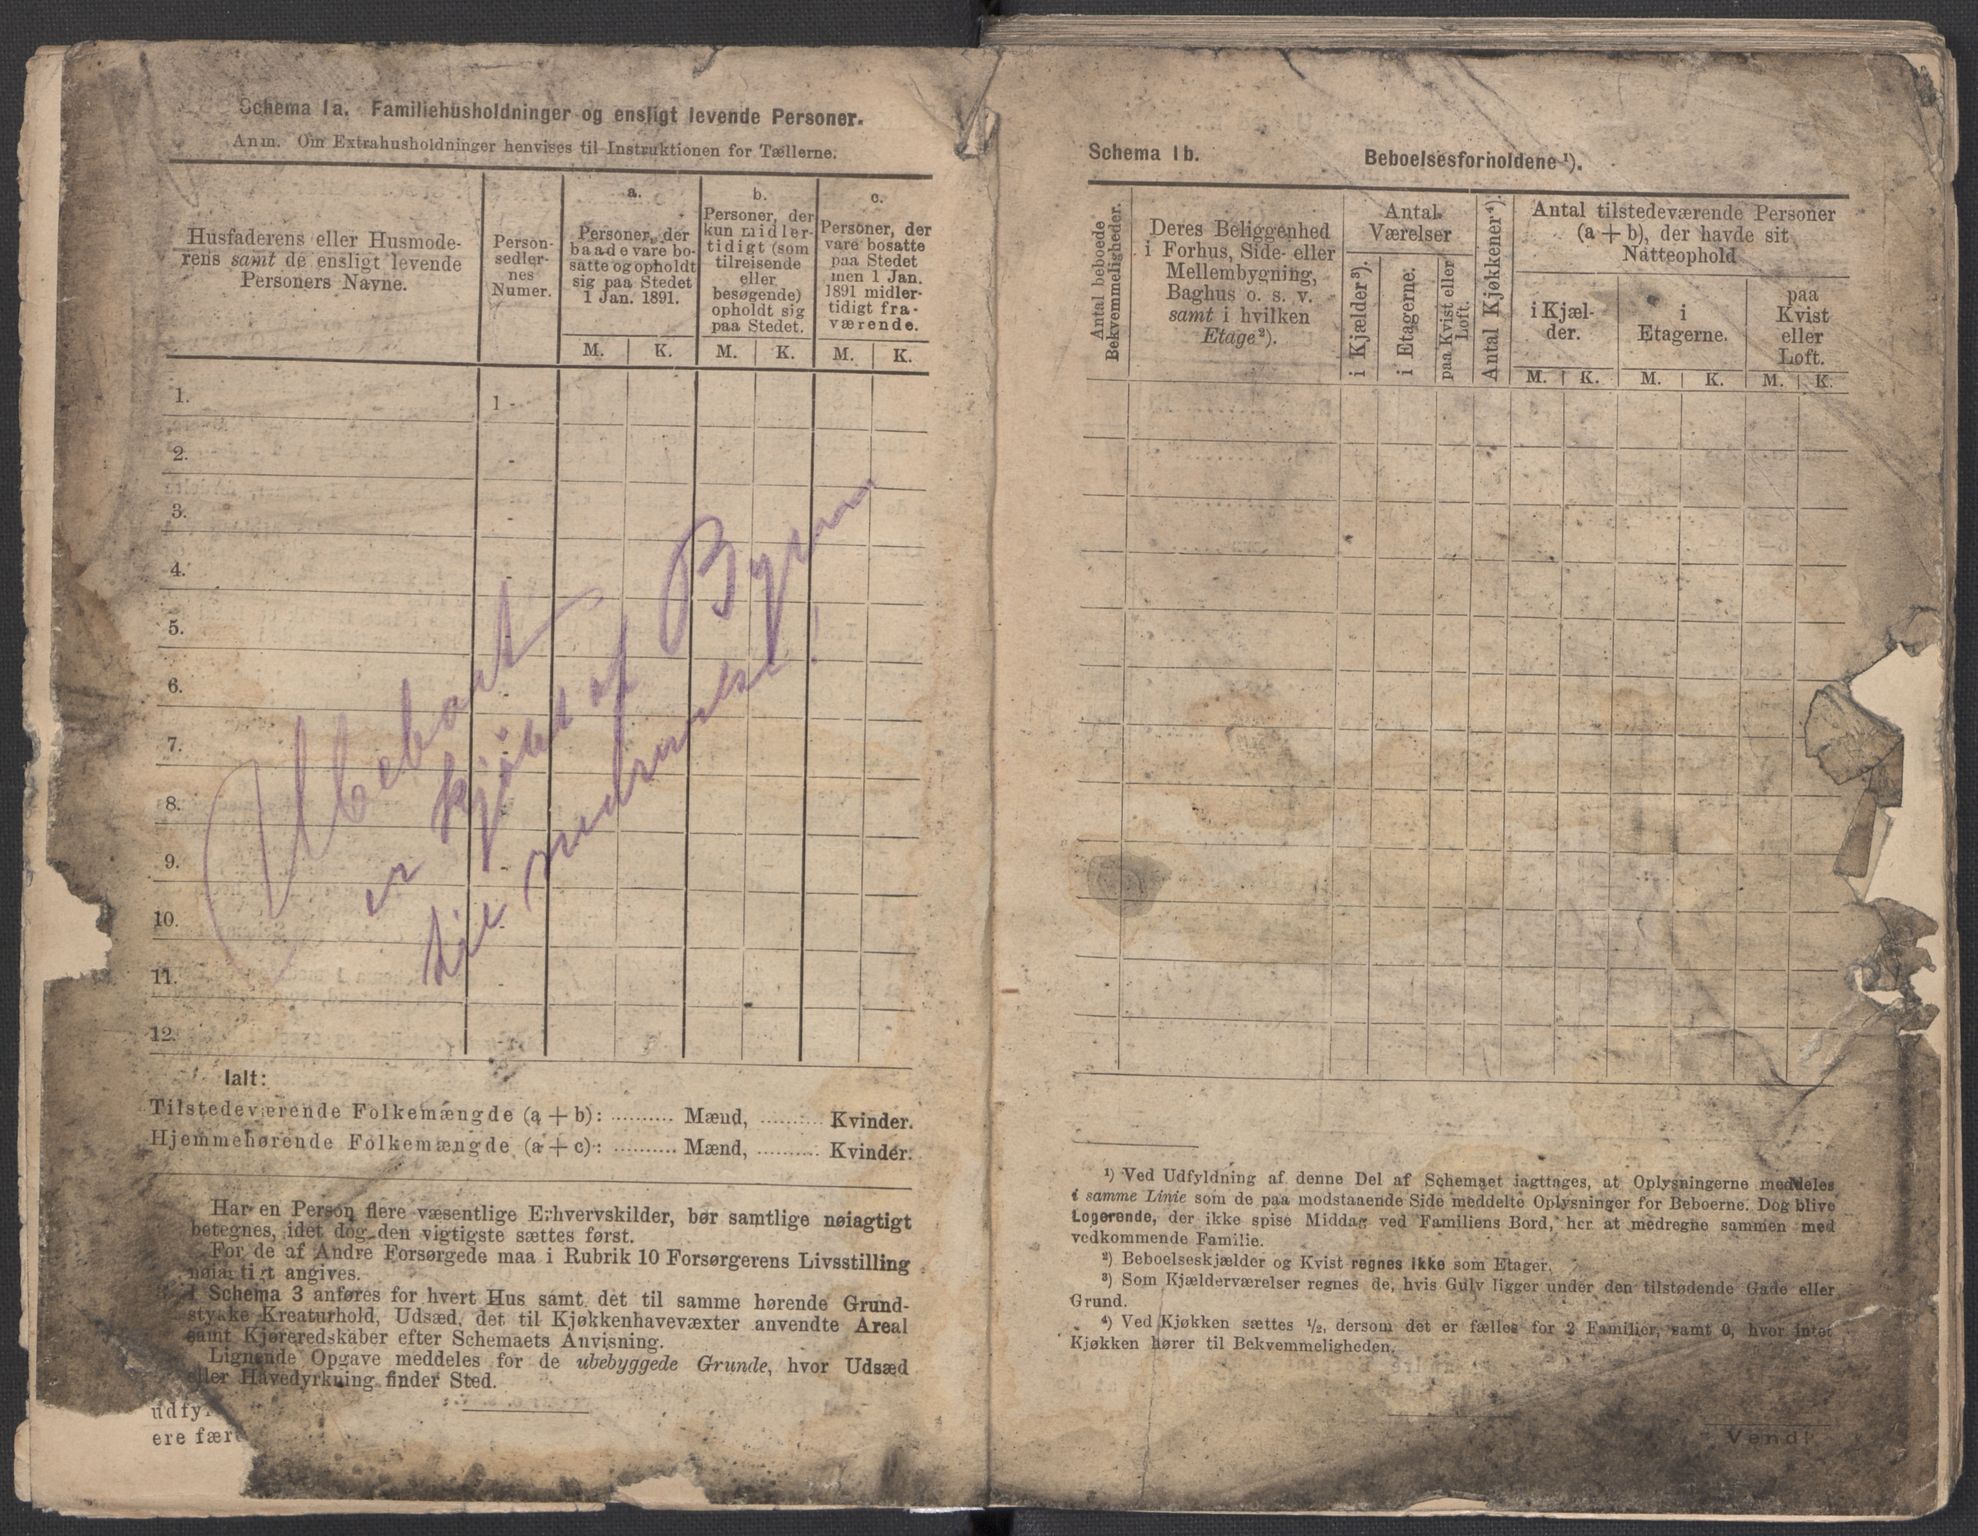 Schema 1a. Familiehusholdninger og ensligt levende Personer.
Anm. Om Extrahusholdninger henvises til Instruktionen for Tællerne.
Husfaderens eller Husmode-
rens samt de ensligt levende
Personers Navne.
Person-
sedler-
nes
Numer.
a.
Personer, der
baade vare bo-
satte og opholdt
sig paa Stedet
1 Jan. 1891.
b.
Personer, der
kun midler-
tidigt (som
tilreisende
eller
besøgende)
opholdt sig
paa Stedet.
c.
Personer, der
vare bosatte
paa Stedet
men 1 Jan.
1891 midler-
tidigt fra-
værende.
M. K. M. K. M. K.
1. 1 -
2. -
3. -
4.
5.
6.
7.
8.
9.
10.
11.
12.
Ubeboet
er kjöbt af Byen
til nedrivelse!
Ialt:
Tilstedeværende Folkemængde (a + b): .......... Mænd, .......... Kvinder.
Hjemmehørende Folkemængde (a + c): .......... Mænd, .......... Kvinder.
Har en Person flere væsentlige Erhvervskilder, bør samtlige nøiagtigt
betegnes, idet dog den vigtigste sættes først.
For de af Andre Forsørgede maa i Rubrik 10 Forsørgerens Livsstilling
nøiagtigt angives.
I Schema 3 anføres for hvert Hus samt det til samme hørende Grund-
stykke Kreaturhold, Udsæd, det til Kjøkkenhavevæxter anvendte Areal
samt Kjøreredskaber efter Schemaets Anvisning.
Lignende Opgave meddeles for de ubebyggede Grunde, hvor Udsæd
eller Havedyrkning finder Sted.
udfy
ere fær
Schema 1b. Beboelsesforholdene¹).
Antal beboede
Bekvemmeligheder.
Deres Beliggenhed
i Forhus, Side- eller
Mellembygning,
Baghus o. s. v.
samt i hvilken
Etage²).
Antal
Værelser
i Kjælder³).
i Etagerne.
paa Kvist eller
Loft.
Antal Kjøkkener⁴).
Antal tilstedeværende Personer
(a + b), der havde sit
Natteophold
i Kjæl-
der.
i
Etagerne.
paa
Kvist
eller
Loft.
M. K. M. K. M. K.
¹) Ved Udfyldning af denne Del af Schemaet iagttages, at Oplysningerne meddeles
i samme Linie som de paa modstaaende Side meddelte Oplysninger for Beboerne. Dog blive
Logerende, der ikke spise Middag ved Familiens Bord, her at medregne sammen med
vedkommende Familie.
²) Beboelseskjælder og Kvist regnes ikke som Etager.
³) Som Kjælderværelser regnes de, hvis Gulv ligger under den tilstødende Gade eller
Grund.
⁴) Ved Kjøkken sættes ½, dersom det er fælles for 2 Familier, samt 0, hvor intet
Kjøkken hører til Bekvemmeligheden.
Vend!